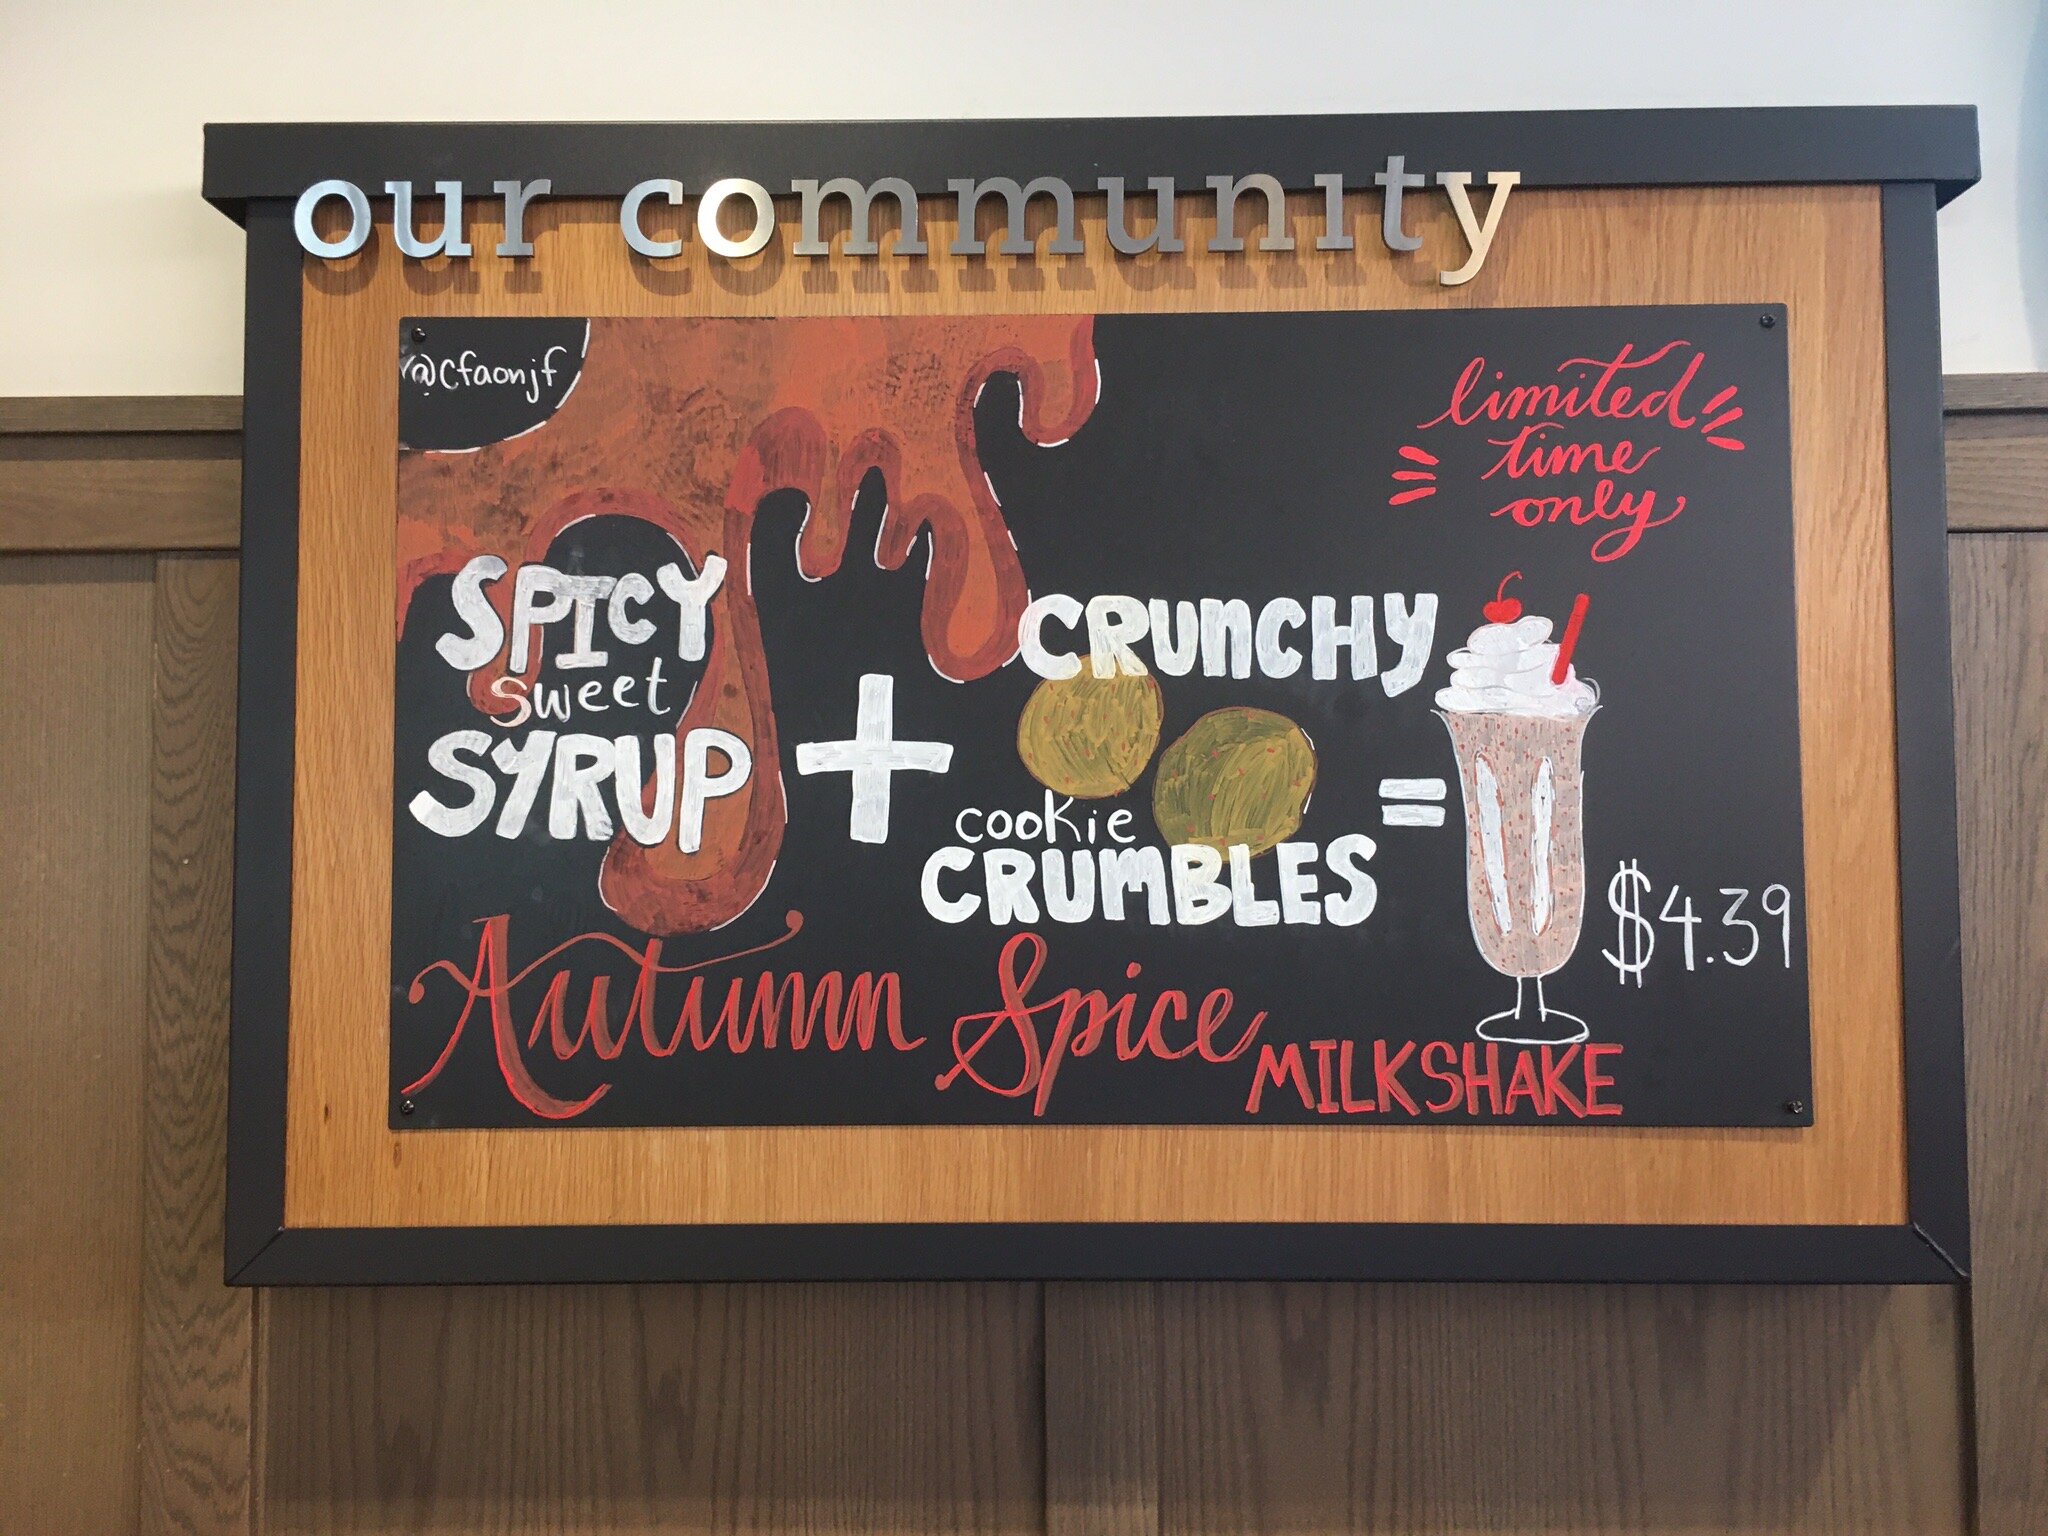 our community
@cfaonjf
limited
time
only
SPICY
sweet
SYRUP
+
CRUNCHY
cookie
CRUMBLES
=
$4.39
Autumn Spice MILKSHAKE